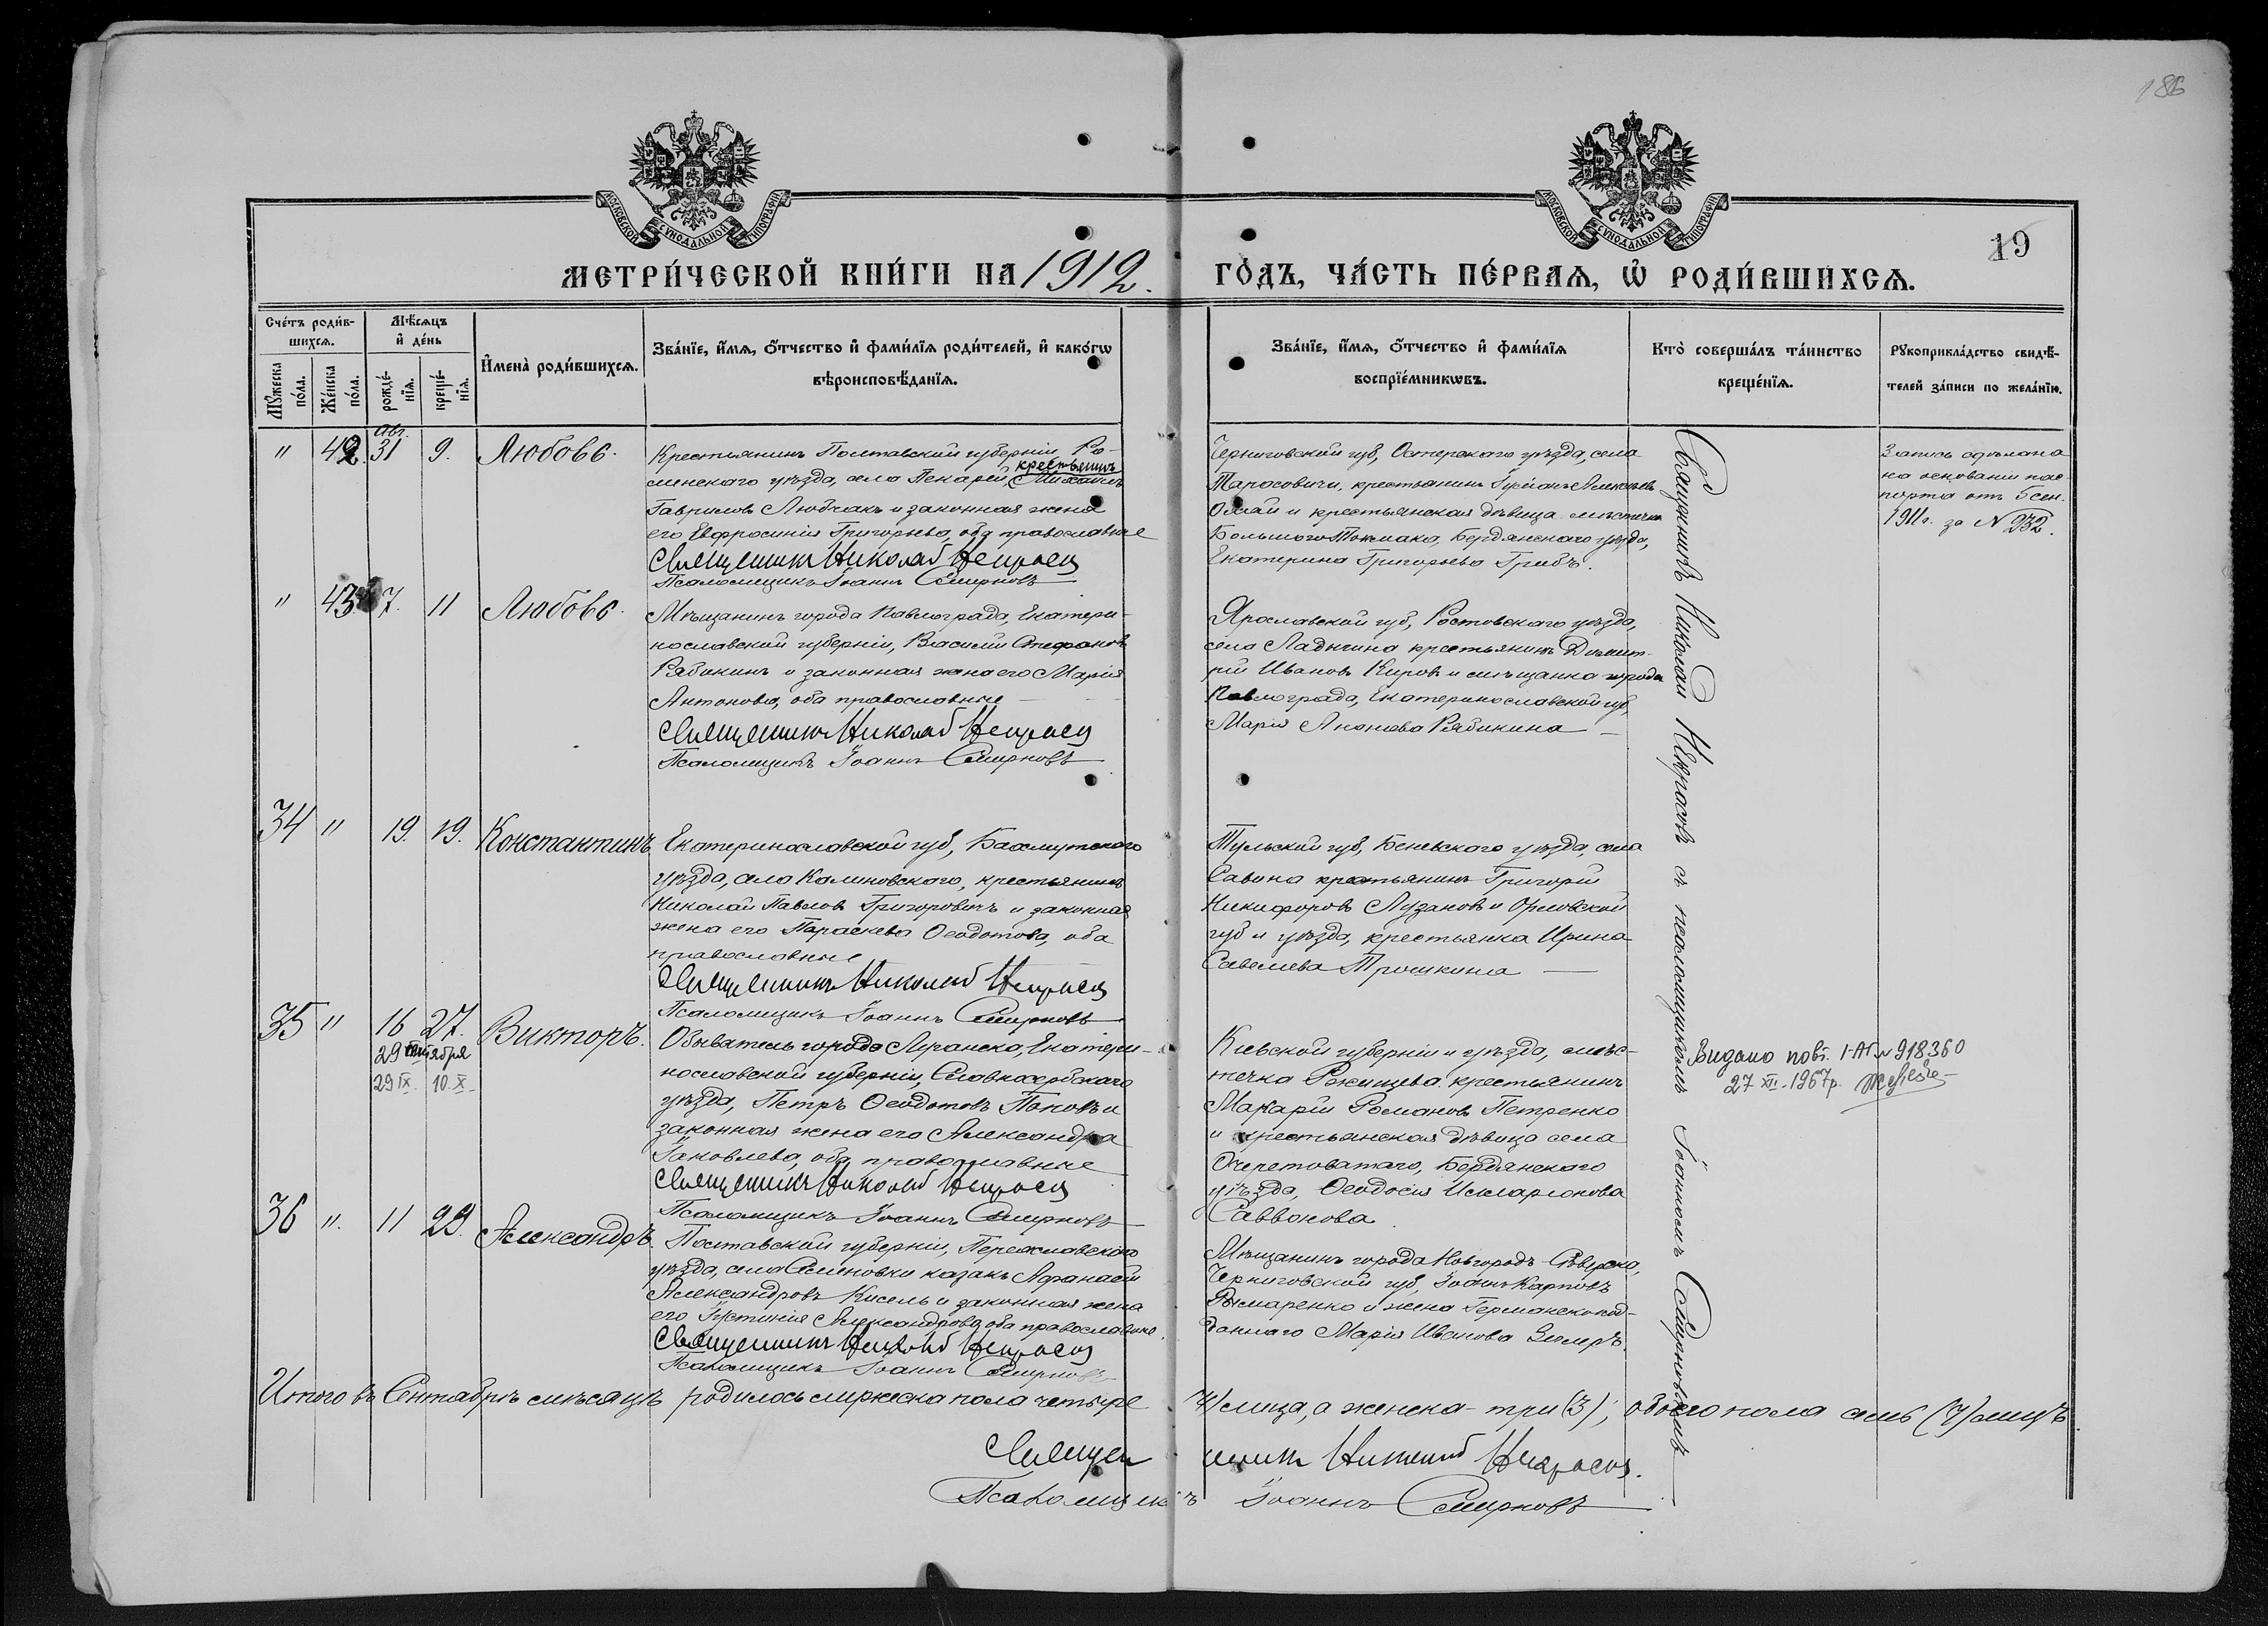 186
МОСКОВСКОЙ СѴНОДАЛЬНОЙ ТИПОГРАФІИ
МОСКОВСКОЙ СѴНОДАЛЬНОЙ ТИПОГРАФІИ
19
МЕТРИ́ЧЕСКОЙ КНИ́ГИ НА 1912.
ГО́ДЪ, ЧА́СТЬ ПЕ́РВАѦ, Ѡ҆ РОДИ́ВШИХСѦ.
Сче́тъ роди́в-
шихсѧ.
Мѣ́сѧцъ
и҆ де́нь
Мꙋ́жеска
по́ла.
Же́нска
по́ла.
рожде́-
нїѧ.
креще́-
нїѧ.
И҆мена̀ роди́вшихсѧ.
Зва́нїе, и҆́мѧ, ѻ҆́тчество и҆ фами́лїѧ роди́телей, и҆ како́гѡ
вѣроисповѣ́данїѧ.
Зва́нїе, и҆́мѧ, ѻ҆́тчество и҆ фами́лїѧ
воспрїе́мникѡвъ.
Кто̀ соверша́лъ та́инство
креще́нїѧ.
Рꙋкоприкла́дство свидѣ́-
телей за́писи по жела́нїю.
" 42. Авг. 31 9. Любовь.
Крестьянинъ Полтавской губерніи, Ро-
менскаго уѣзда, села Пекарей, крестьянинъ Михаилъ
Гавриловъ Любчакъ и законная жена
его Евфросинія Григорьева, оба православные
Священникъ Николай Некрасов
Псаломщикъ Іоаннъ Смирновъ
Черниговской губ, Остерскаго уѣзда, села
Тарасовичи, крестьянинъ Алексѣевъ
и крестьянская дѣвица мѣстечка
Большого Токмака, Бердянскаго уѣзда,
Екатерина Григорьева Грибъ.
Запись сдѣлана
на основаніи пас
порта отъ 5 сен.
1911 г. за N 232.
" 43 7. 11 Любовь.
Мѣщанинъ города Павлограда, Екатери-
нославской губерніи, Василій Стефановъ
Рябикинъ и законная жена его Марія
Антонова, оба православные
Священникъ Николай Некрасов
Псаломщикъ Іоаннъ Смирновъ
Ярославской губ, Ростовскаго уѣзда,
села крестьянинъ Димит-
рій Ивановъ Киров и мѣщанка города
Павлограда, Екатеринославской губ,
Марія Рябикина
34 " 19. 19. Константинъ
Екатеринославской губ, Бахмутскаго
уѣзда, села Калиновскаго, крестьянинъ
Николай Павлов Григоровичъ и законная
жена его Параскева Ѳеодотова, оба
православные
Священникъ Николай Некрасов
Псаломщикъ Іоаннъ Смирновъ
Тульской губ, уѣзда, села
Савина крестьянинъ Григорій
Никифоровъ Лузановъ и Орловской
губ и уѣзда, крестьянка Ирина
Савельева Трошкина
35 " 16 27. Викторъ.
29 сентября
29 IX 10. X
Обыватель города Луганска, Екатери-
нославской губерніи, Славяносербскаго
уѣзда, Петръ Ѳеодотовъ Поповъ и
законная жена его Александра
Іаковлева, оба православные
Священникъ Николай Некрасов
Псаломщикъ Іоаннъ Смирновъ
Кіевской губерніи и уѣзда, мѣс-
течка Ржищева крестьянинъ
Макарій Романов Петренко
и крестьянская дѣвица села
Очеретоватаго, Бердянскаго
уѣзда, Ѳеодосія Иларіонова
Саввонова.
Видано повт. І-АП № 918360
27 XII-1967р.
36 " 11 29. Александръ.
Полтавской губерніи, Переяславскаго
уѣзда, села Семеновки казакъ Афанасій
Александровъ Кисель и законная жена
его Іустинія Александрова, оба православные.
Священникъ Николай Некрасов
Псаломщикъ Іоаннъ Смирновъ
Мѣщанинъ города Новгородъ-Сѣверска,
Черниговской губ, Іоаннъ Карповъ
Рымаренко и жена Германскопод-
даннаго Марія Иванова
Священникъ Николай Некрасовъ съ псаломщикомъ Іоанномъ Смирновымъ
Итого въ Сентябрѣ мѣсяцѣ родилось мужеска пола четыре (4) лица, а женска - три (3); обоего пола семь (7) лицъ.
Священникъ Николай Некрасов.
Псаломщикъ Іоаннъ Смирновъ